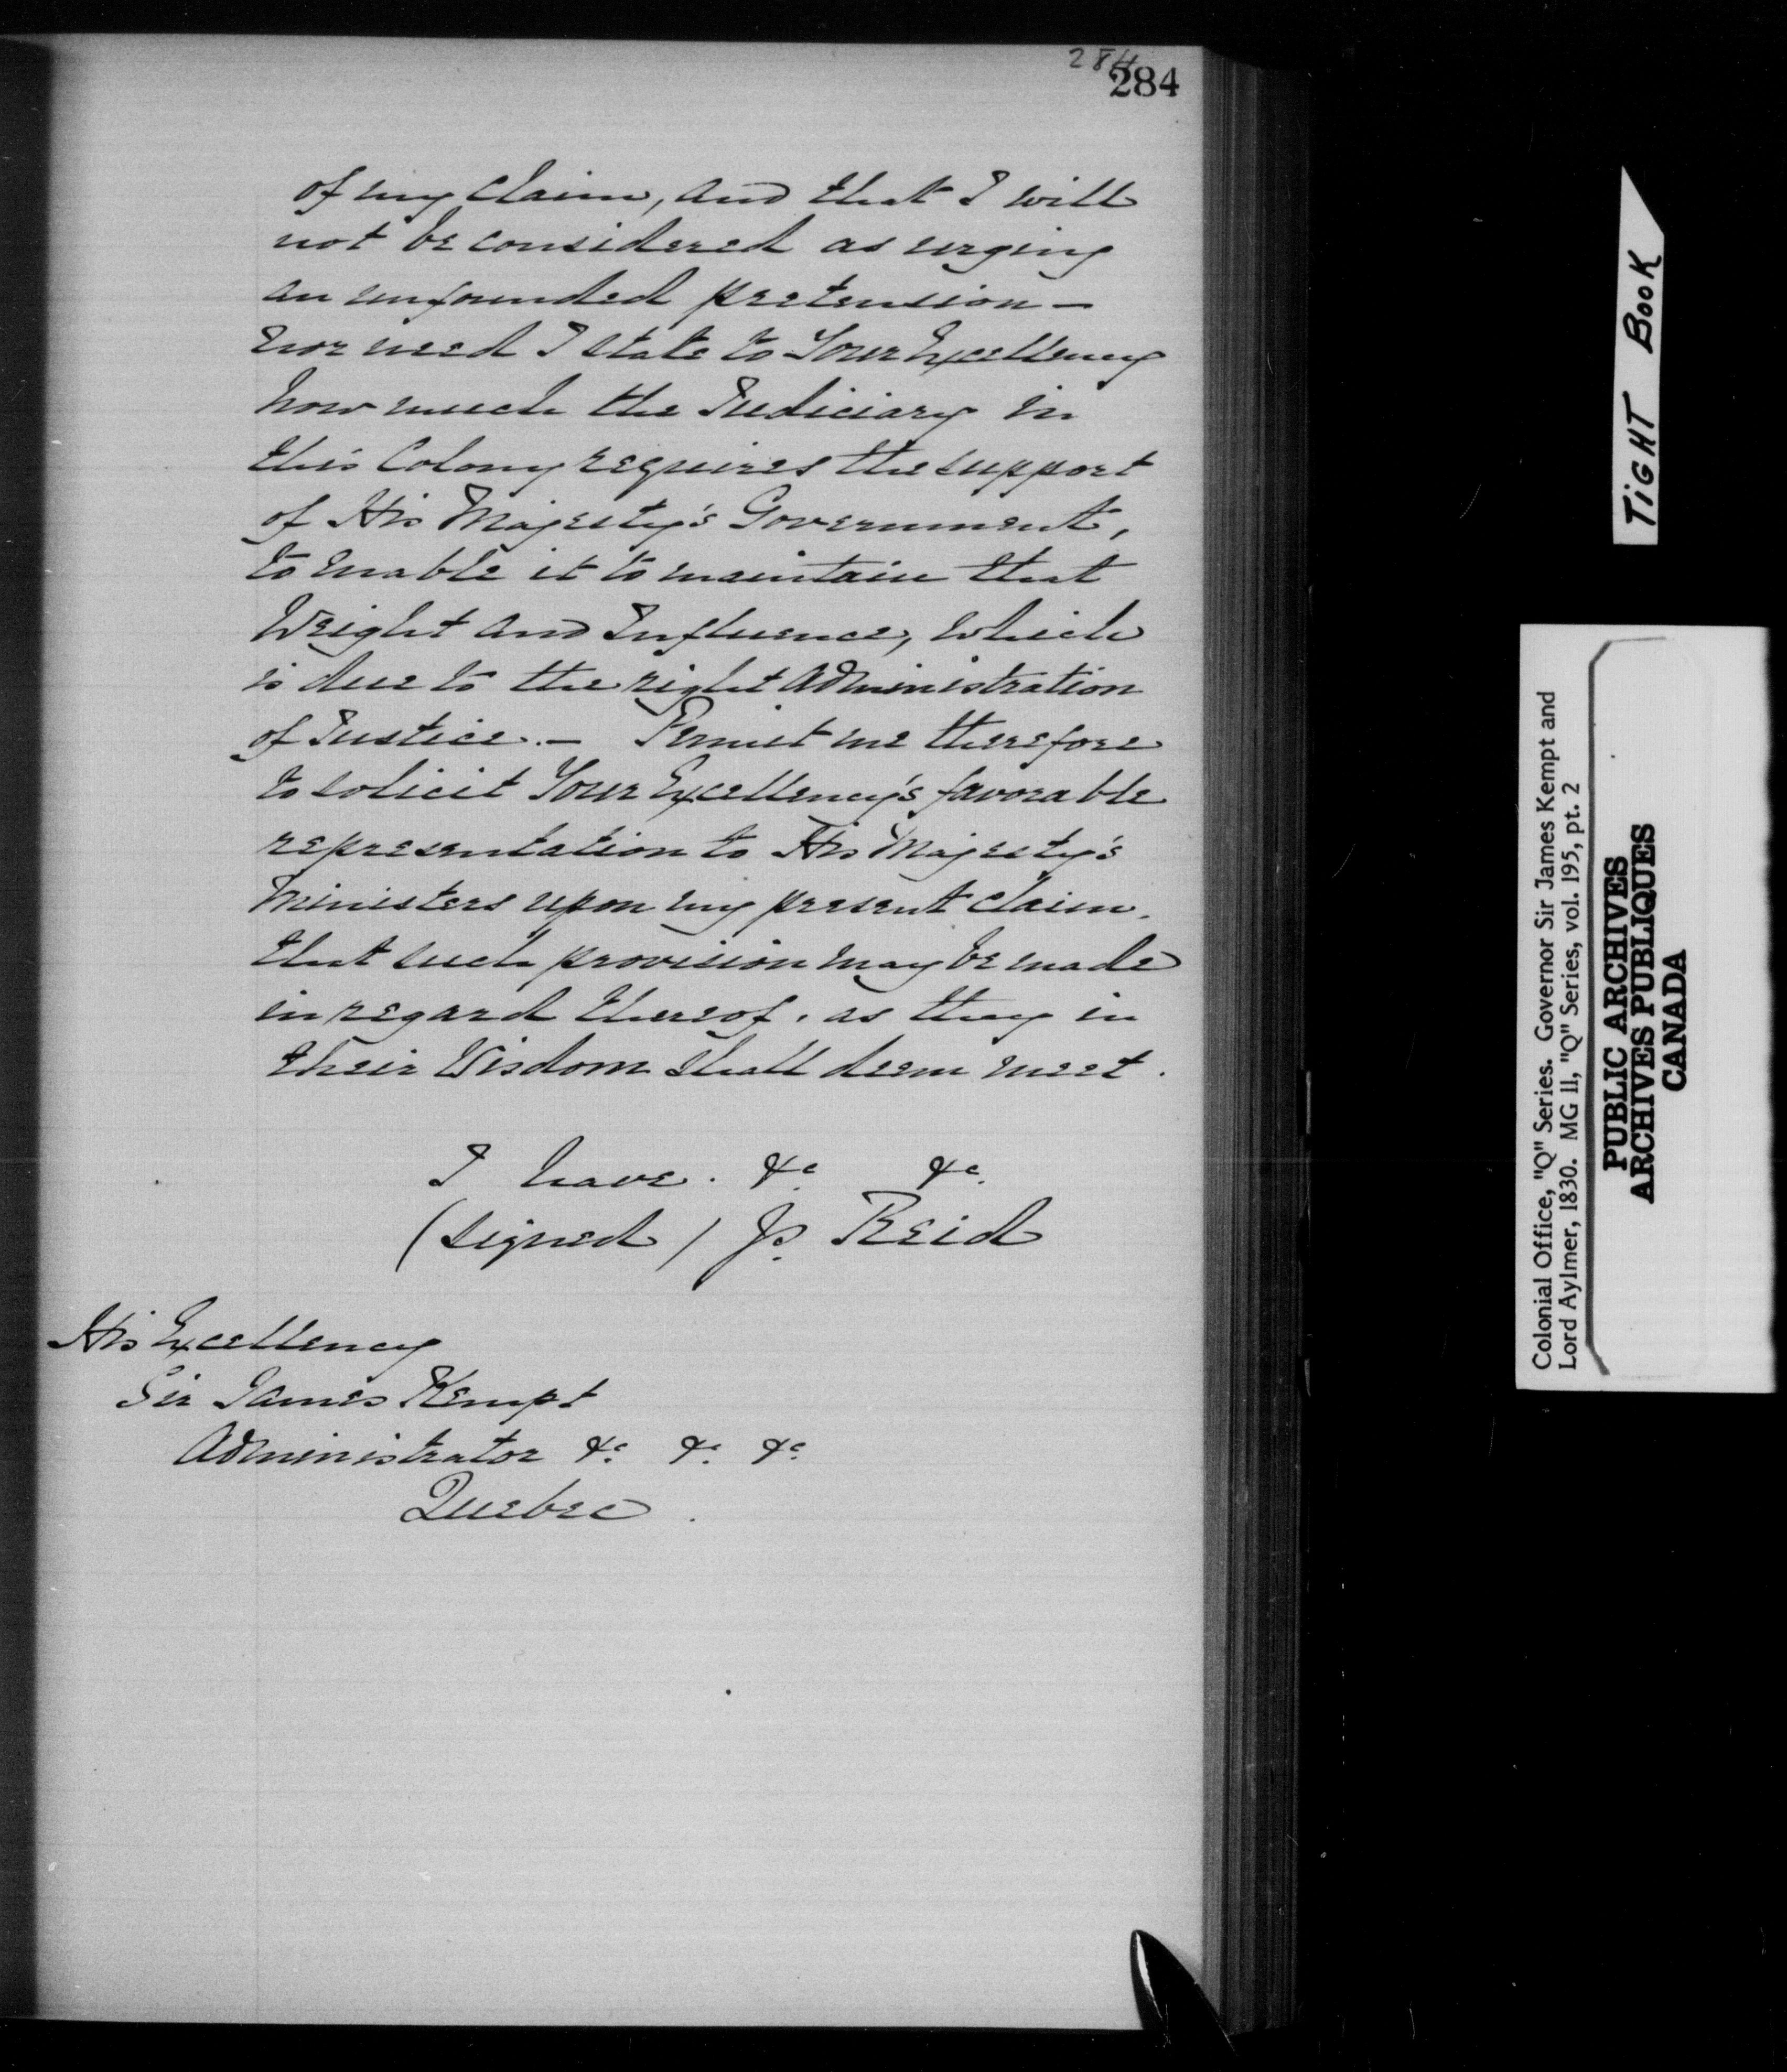 284
284
of my claim, and that I will
not be considered as urging
an unfounded pretension –
nor need I state to Your Excellency
how much the Judiciary in
this Colony requires the support
of His Majesty's Government,
to enable it to maintain that
Weight and Influence, which
is due to the right administration
of Justice. – Permit me therefore
to solicit Your Excellency's favorable
representation to His Majesty's
Ministers upon my present claim.
that such provision may be made
in regard thereof, as they in
their Wisdom shall deem meet.
I have. &c &c.
(signed) Js. Reid
His Excellency
Sir James Kempt
Administrator &c. &c. &c.
Quebec.
TIGHT BOOK
Colonial Office, "Q" Series. Governor Sir James Kempt and
Lord Aylmer, 1830. MG 11, "Q" Series, vol. 195, pt. 2
PUBLIC ARCHIVES
ARCHIVES PUBLIQUES
CANADA